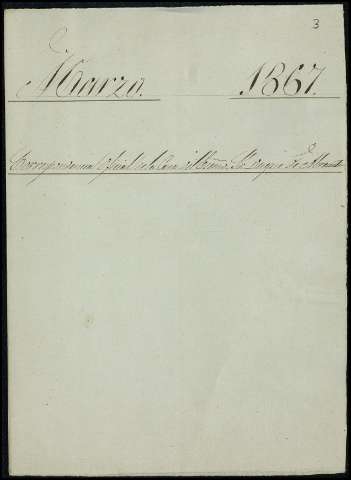 3
Marzo. 1867.
Correspondencia Oficial de la Casa del Excmo. Sr. Duque de Abrantes